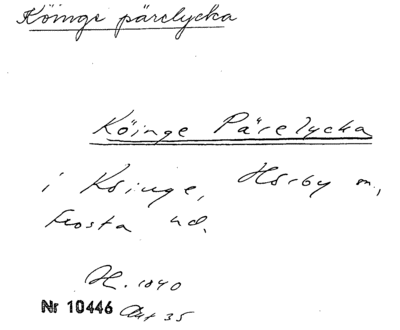 Köinge pärelycka
Köinge Pärelycka
i Köinge, Hörby m.,
Frosta hd.
H. 1040
Nr 10446 Akt 35